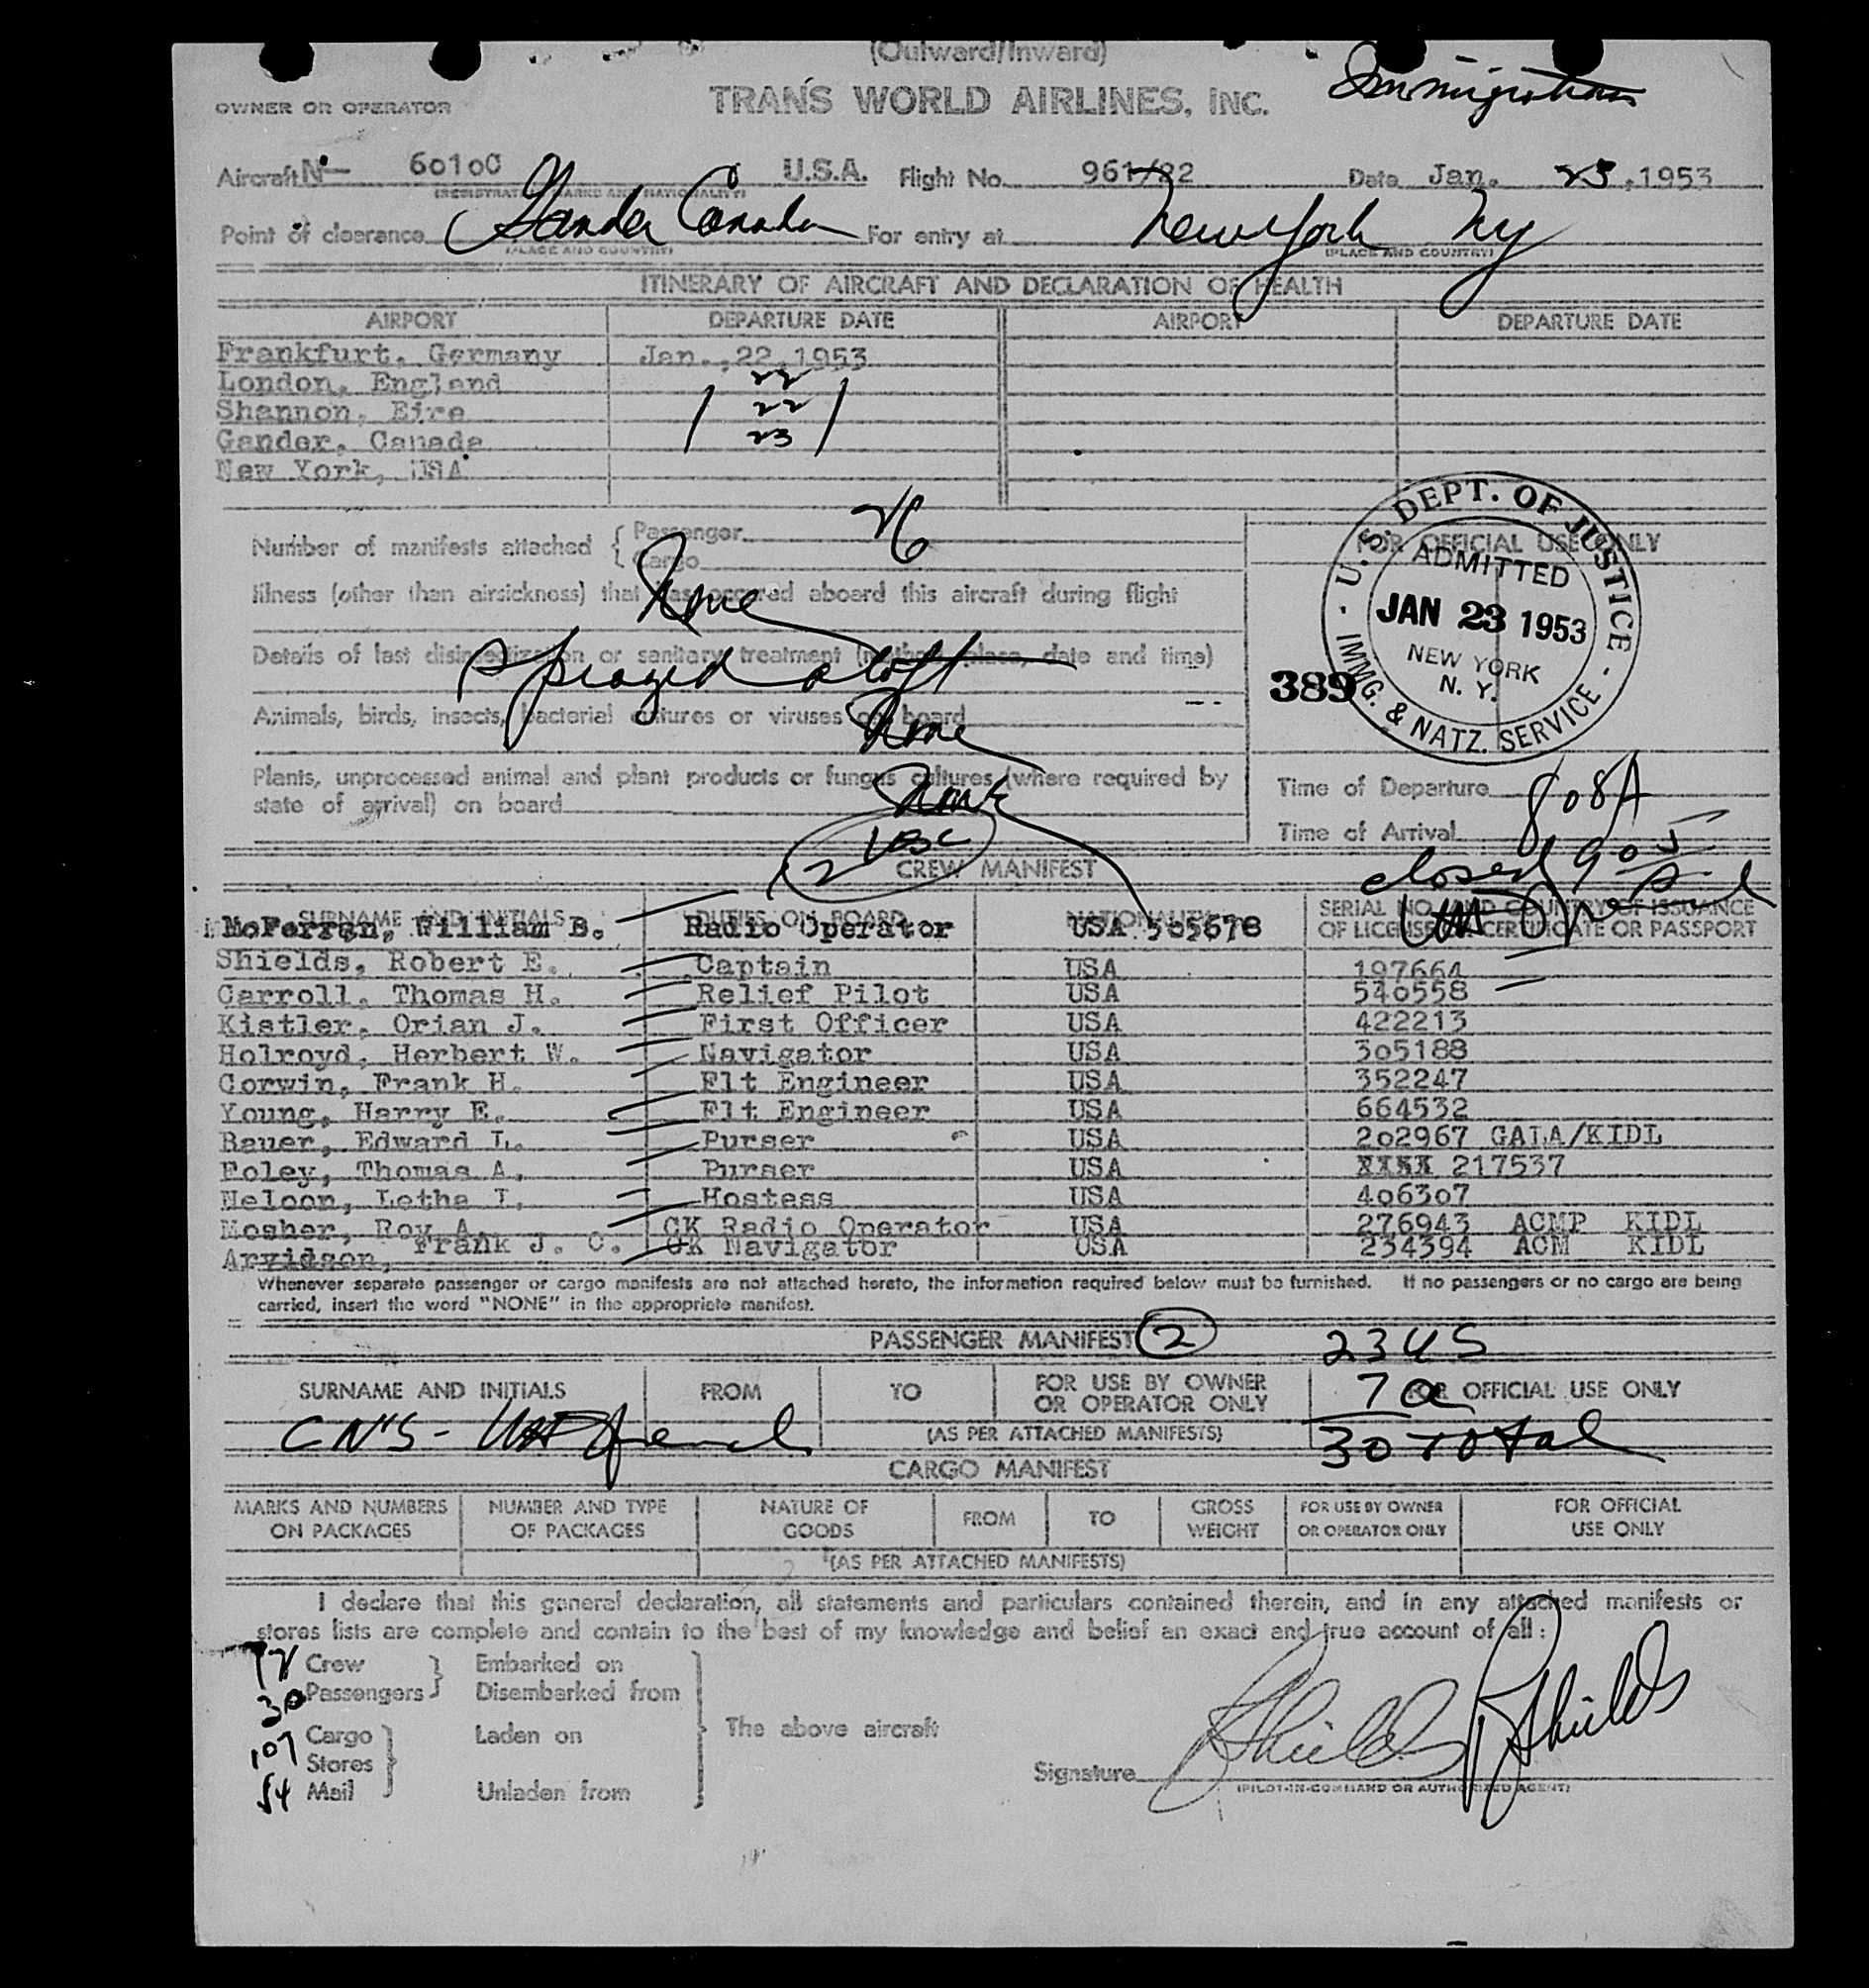 (Outward/Inward)
OWNER OR OPERATOR TRANS WORLD AIRLINES, INC. Immigration
Aircraft N- 60100 U.S.A. Flight No. 961/22 Date Jan. 23, 1953
(REGISTRATION MARKS AND NATIONALITY)
Point of clearance Gander Canada For entry at New York NY
(PLACE AND COUNTRY) (PLACE AND COUNTRY)
ITINERARY OF AIRCRAFT AND DECLARATION OF HEALTH
AIRPORT DEPARTURE DATE AIRPORT DEPARTURE DATE
Frankfurt, Germany Jan., 22, 1953
London, England 22
Shannon, Eire 22
Gander, Canada 23
New York, USA
Number of manifests attached { Passenger 26
Cargo
FOR OFFICIAL USE ONLY
Illness (other than airsickness) that has occured aboard this aircraft during flight
None
Details of last disinsectization or sanitary treatment (method, place, date and time)
Sprayed aloft
Animals, birds, insects, bacterial cultures or viruses on board None
Plants, unprocessed animal and plant products or fungus cultures (where required by
state of arrival) on board None
U.S. DEPT. OF JUSTICE - IMMG. & NATZ. SERVICE -
ADMITTED
JAN 23 1953
NEW YORK
N. Y.
389
Time of Departure 808A
Time of Arrival
closed 905
2
CREW MANIFEST
SURNAME AND INITIALS DUTIES ON BOARD NATIONALITY SERIAL NO. AND COUNTRY OF ISSUANCE
OF LICENSE, CERTIFICATE OR PASSPORT
McFerran, William B. Radio Operator USA 505678
Shields, Robert E. Captain USA 197664
Carroll, Thomas H. Relief Pilot USA 540558
Kistler, Orian J. First Officer USA 422213
Holroyd, Herbert W. Navigator USA 305188
Corwin, Frank H. Flt Engineer USA 352247
Young, Harry E. Flt Engineer USA 664532
Bauer, Edward L. Purser USA 202967 GALA/KIDL
Foley, Thomas A. Purser USA XXXX 217537
Nelson, Letha I. Hostess USA 406307
Mosher, Roy A. CK Radio Operator USA 276943 ACMP KIDL
Arvidson, Frank J. C. CK Navigator USA 234394 ACM KIDL
Whenever separate passenger or cargo manifests are not attached hereto, the information required below must be furnished. If no passengers or no cargo are being
carried, insert the word "NONE" in the appropriate manifest.
PASSENGER MANIFEST 2 23 US
SURNAME AND INITIALS FROM TO FOR USE BY OWNER
OR OPERATOR ONLY 7 a FOR OFFICIAL USE ONLY
CN'S - (AS PER ATTACHED MANIFESTS) 30 Total
CARGO MANIFEST
MARKS AND NUMBERS
ON PACKAGES NUMBER AND TYPE
OF PACKAGES NATURE OF
GOODS FROM TO GROSS
WEIGHT FOR USE BY OWNER
OR OPERATOR ONLY FOR OFFICIAL
USE ONLY
(AS PER ATTACHED MANIFESTS)
I declare that this general declaration, all statements and particulars contained therein, and in any attached manifests or
stores lists are complete and contain to the best of my knowledge and belief an exact and true account of all :
12 Crew } Embarked on
30 Passengers } Disembarked from
107 Cargo } Laden on The above aircraft
Stores
54 Mail Unladen from
Signature R Shields R Shields
(PILOT-IN-COMMAND OR AUTHORIZED AGENT)